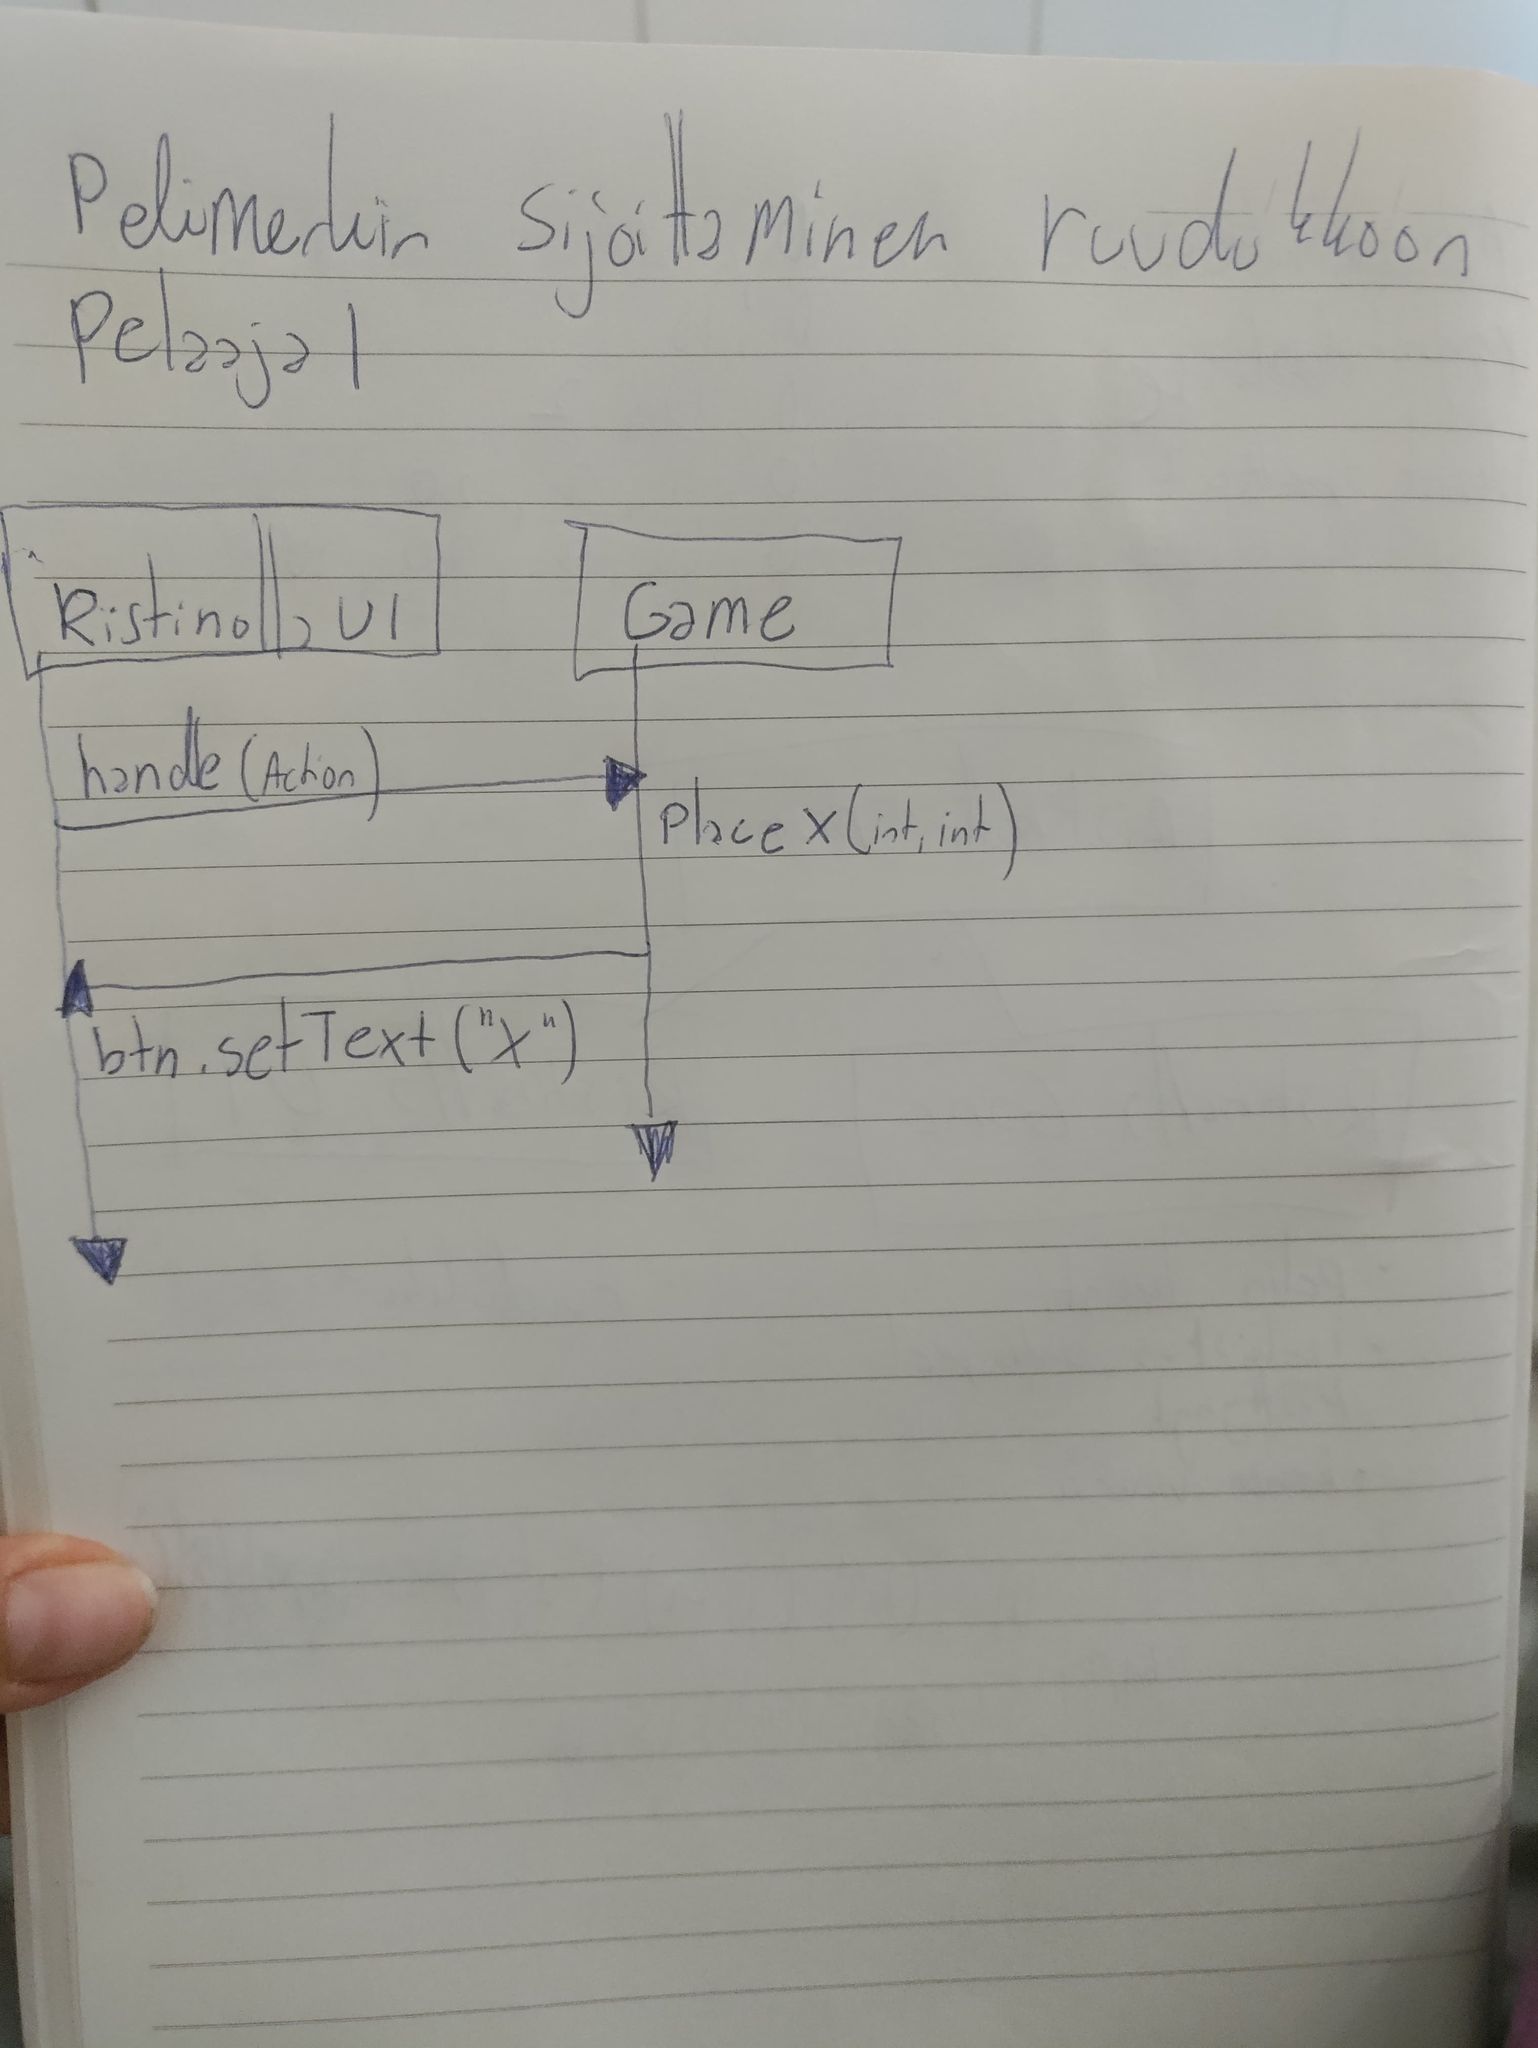 Pelimerkin sijoittaminen ruudukkoon
Pelaaja 1
Ristinolla UI
Game
handle (Action)
Place X (int, int)
btn.setText ("X")